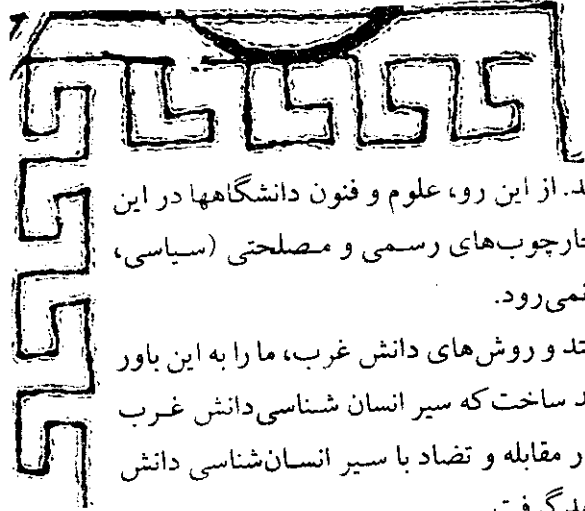 ـد. از این رو، علوم و فنون دانشگاهها در این
چارچوب‌های رسمی و مصلحتی (سیاسی،
نمی‌رود.
متد و روش‌های دانش غرب، ما را به این باور
ـد ساخت که سیر انسان شناسی دانش غرب
ر مقابله و تضاد با سیر انسان‌شناسی دانش
گرفت